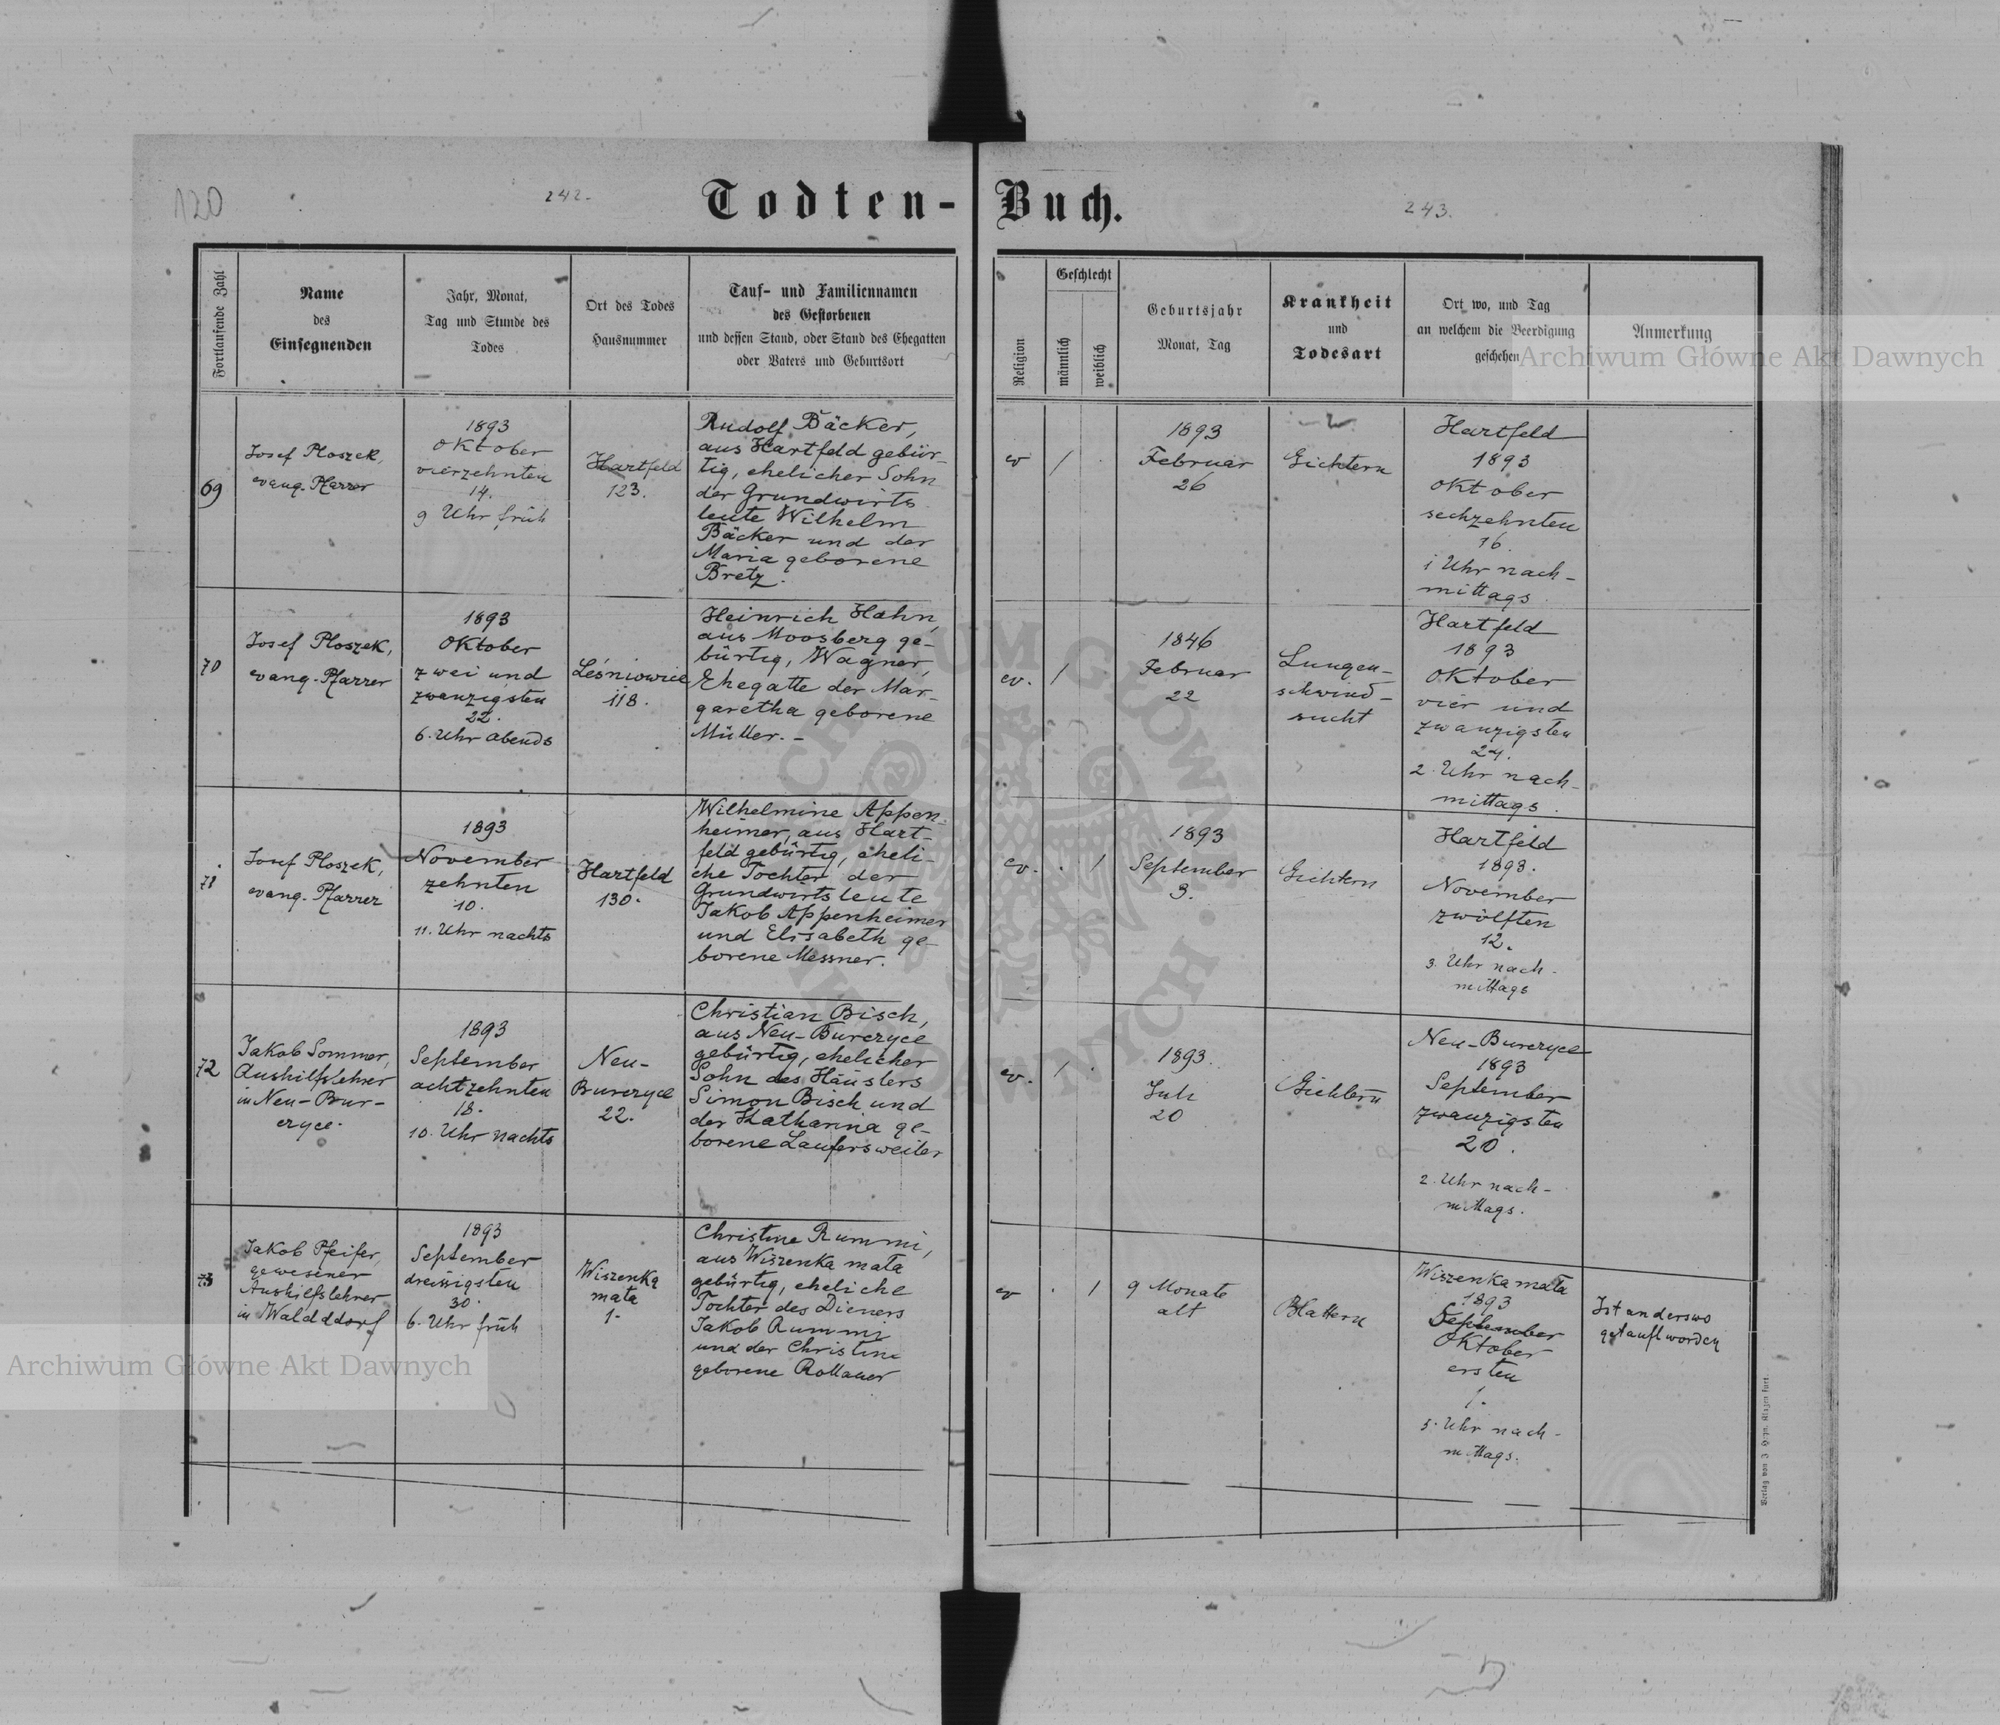 120
242.
Todten-Buch.
243.
Fortlaufende Zahl
Name
des
Einsegnenden
Jahr, Monat,
Tag und Stunde des
Todes
Ort des Todes
Hausnummer
Tauf- und Familiennamen
des Gestorbenen
und dessen Stand, oder Stand des Ehegatten
oder Vaters und Geburtsort
Religion
Geschlecht
männlich
weiblich
Geburtsjahr
Monat, Tag
Krankheit
und
Todesart
Ort wo, und Tag
an welchem die Beerdigung
geschehen
Anmerkung
69
Josef Ploszek,
evang. Pfarrer
1893
Oktober
vierzehnten
14.
9 Uhr früh
Hartfeld
123.
Rudolf Bäcker,
aus Hartfeld gebür-
tig, ehelicher Sohn
der Grundwirts
leute Wilhelm
Bäcker und der
Maria geborene
Bretz.
ev
/
.
1893
Februar
26
Gichtern
Hartfeld
1893
Oktober
sechzehnten
16.
1 Uhr nach-
mittags
70
Josef Ploszek,
evang. Pfarrer
1893
Oktober
zwei und
zwanzigsten
22.
6. Uhr abends
Leśniowice
118.
Heinrich Hahn,
aus Moosberg ge-
bürtig, Wagner,
Ehegatte der Mar-
garetha geborene
Müller. -
ev.
/
1846
Februar
22
Lungen-
schwind-
sucht
Hartfeld
1893
Oktober
vier und
zwanzigsten
24.
2. Uhr nach-
mittags.
71
Josef Ploszek,
evang. Pfarrer
1893
November
zehnten
10.
11. Uhr nachts
Hartfeld
130.
Wilhelmine Appen-
heimer, aus Hart-
feld gebürtig, eheli-
che Tochter der
Grundwirtsleute
Jakob Appenheimer
und Elisabeth ge-
borene Messner.
ev.
.
/
1893
September
3.
Gichtern
Hartfeld
1893.
November
zwölften
12.
3. Uhr nach-
mittags
72
Jakob Sommer,
Aushilfslehrer
in Neu-Bur-
czyce.
1893
September
achtzehnten
18.
10. Uhr nachts
Neu-
Burczyce
22.
Christian Bisch,
aus Neu-Burczyce
gebürtig, ehelicher
Sohn des Häuslers
Simon Bisch und
der Katharina ge-
borene Laufersweiler
ev.
/
.
1893.
Juli
20
Gichtern
Neu-Burczyce
1893
September
zwanzigsten
20.
2. Uhr nach-
mittags.
73
Jakob Pfeifer,
gewesener
Aushilfslehrer
in Waldddorf
1893
September
dreissigsten
30.
6. Uhr früh
Wiszenka
mała
1.
Christine Rummi,
aus Wiszenka mała
gebürtig, eheliche
Tochter des Dieners
Jakob Rummi
und der Christine
geborene Rollauer
ev
.
/
9 Monate
alt
Blattern
Wiszenka mała
1893
September
Oktober
ersten
1.
5. Uhr nach-
mittags.
Ist anderswo
getauft worden
Archiwum Główne Akt Dawnych
Archiwum Główne Akt Dawnych